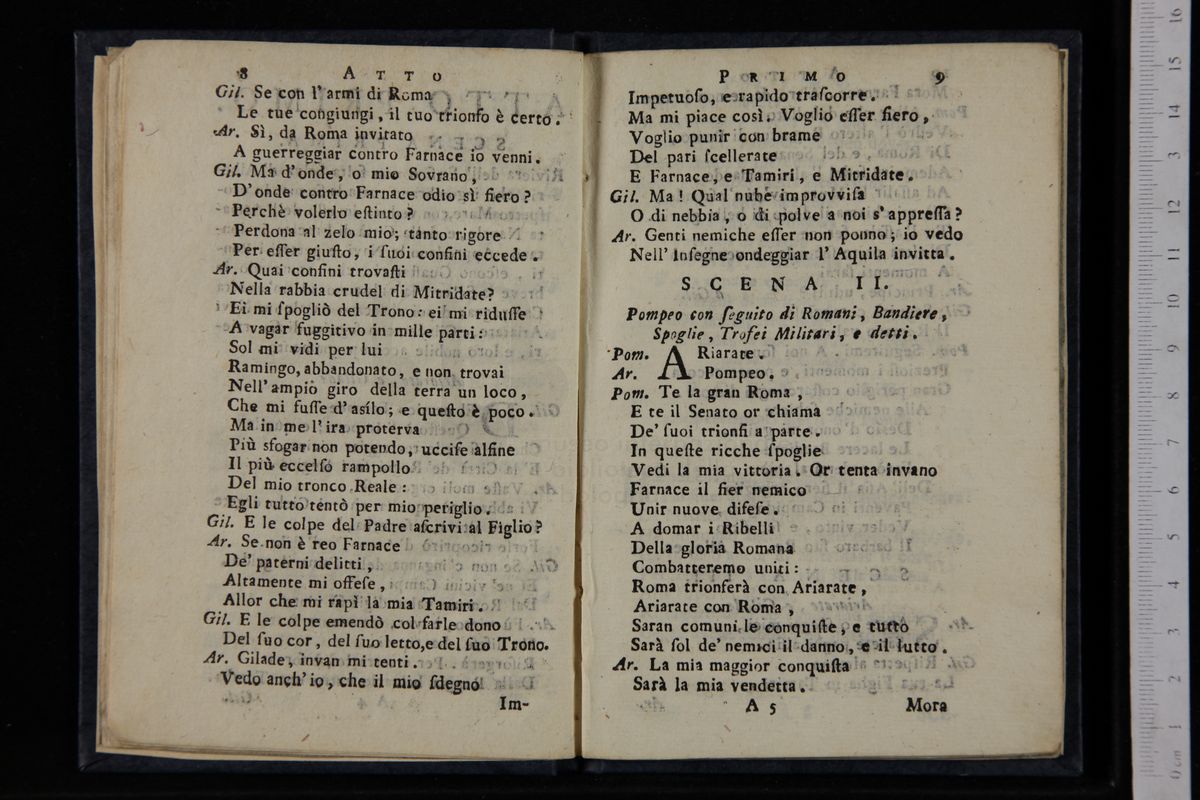 8 ATTO
Gil. Se con l'armi di Roma
Le tue congiungi, il tuo trionfo è certo.
Ar. Sì, da Roma invitato
A guerreggiar contro Farnace io venni.
Gil. Ma d'onde, o mio Sovrano,
D'onde contro Farnace odio sì fiero?
Perchè volerlo eſtinto?
Perdona al zelo mio; tanto rigore
Per eſſer giuſto, i ſuoi confini eccede.
Ar. Quai confini trovaſti
Nella rabbia crudel di Mitridate?
Ei mi ſpogliò del Trono: ei mi riduſſe
A vagar fuggitivo in mille parti:
Sol mi vidi per lui
Ramingo, abbandonato, e non trovai
Nell'ampio giro della terra un loco,
Che mi fuſſe d'asílo; e queſto è poco.
Ma in me l'ira proterva
Più sfogar non potendo, ucciſe alfine
Il più eccelſo rampollo
Del mio tronco Reale:
Egli tutto tentò per mio periglio.
Gil. E le colpe del Padre aſcrivi al Figlio?
Ar. Se non è reo Farnace
De' paterni delitti,
Altamente mi offeſe,
Allor che mi rapì la mia Tamiri.
Gil. E le colpe emendò col farle dono
Del ſuo cor, del ſuo letto, e del ſuo Trono.
Ar. Gilade, invan mi tenti.
Vedo anch'io, che il mio ſdegno
Im-
PRIMO 9
Impetuoſo, e rapido traſcorre.
Ma mi piace così. Voglio eſſer fiero,
Voglio punir con brame
Del pari ſcellerate
E Farnace, e Tamiri, e Mitridate.
Gil. Ma! Qual nube improvviſa
O di nebbia, o di polve a noi s'appreſſa?
Ar. Genti nemiche eſſer non ponno; io vedo
Nell'Inſegne ondeggiar l'Aquila invitta.
SCENA II.
Pompeo con ſeguito di Romani, Bandiere,
Spoglie, Trofei Militari, e detti.
Pom. ARiarate.
Ar. Pompeo.
Pom. Te la gran Roma,
E te il Senato or chiama
De' ſuoi trionfi a parte.
In queſte ricche ſpoglie
Vedi la mia vittoria. Or tenta invano
Farnace il fier nemico
Unir nuove difeſe.
A domar i Ribelli
Della gloria Romana
Combatteremo uniti:
Roma trionferà con Ariarate,
Ariarate con Roma,
Saran comuni le conquiſte, e tutto
Sarà ſol de' nemici il danno, e il lutto.
Ar. La mia maggior conquiſta
Sarà la mia vendetta.
A 5 Mora
0 cm 1 2 3 4 5 6 7 8 9 10 11 12 13 14 15 16